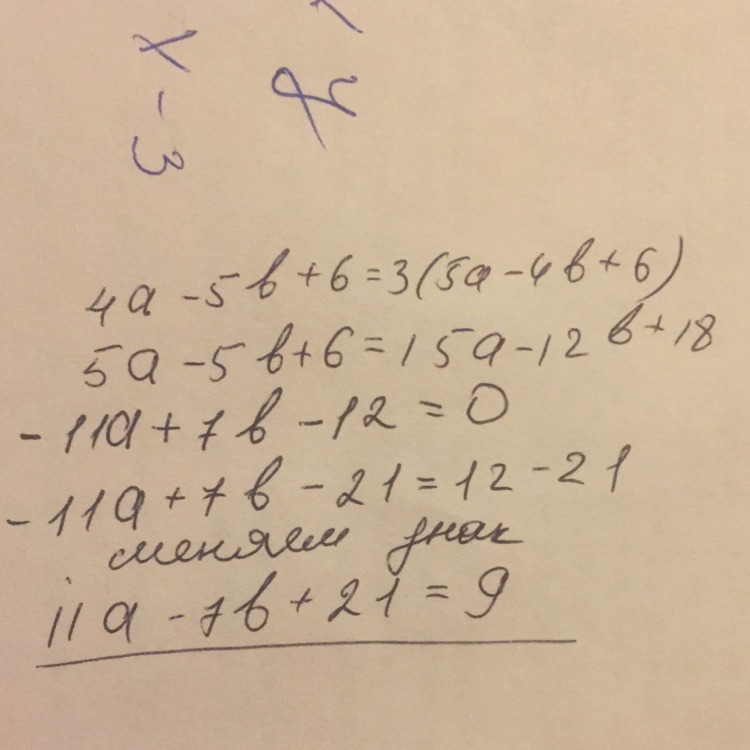 y
x - 3
4a - 5b + 6 = 3(5a - 4b + 6)
5a - 5b + 6 = 15a - 12b + 18
- 11a + 7b - 12 = 0
- 11a + 7b - 21 = 12 - 21
меняем знак
11a - 7b + 21 = 9